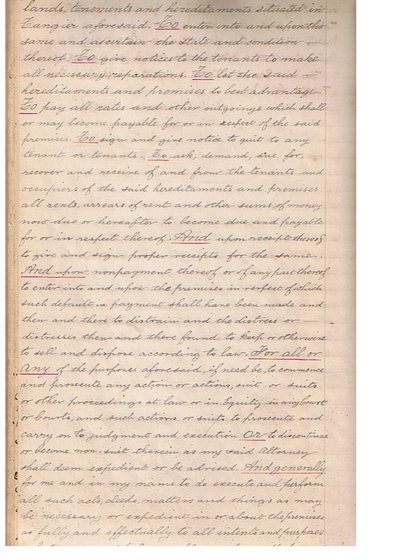 lands, tenements and hereditaments situated in
Tangier aforesaid. To enter into and upon the
same and ascertain the state and condition
thereof. To give notices to the tenants to make
all necessary reparations. To let the said
hereditaments and premises to best advantage
To pay all rates and other outgoings which shall
or may become payable for or in respect of the said
premises. To sign and give notice to quit to any
tenant or tenants. To ask, demand, sue for,
recover and receive of and from the tenants and
occupiers of the said hereditaments and premises
all rents, arrears of rent and other sums of money
now due or hereafter to become due and payable
for or in respect thereof. And upon receipt thereof
to give and sign proper receipts for the same.
And upon nonpayment thereof or of any part thereof
to enter into and upon the premises in respect of which
such default in payment shall have been made and
then and there to distrain and the distress or
distresses then and there found to keep or otherwise
to sell and dispose according to law. For all or
any of the purposes aforesaid, if need be to commence
and prosecute any action or actions, suit or suits
or other proceedings at law or in Equity in any Court
or Courts, and such actions or suits to prosecute and
carry on to judgment and execution or to discontinue
or become non suit therein as my said Attorney
shall deem expedient or be advised. And generally
for me and in my name to do execute and perform
all such acts, deeds matters and things as may
be necessary or expedient in or about the premises
as fully and effectually to all intents and purposes